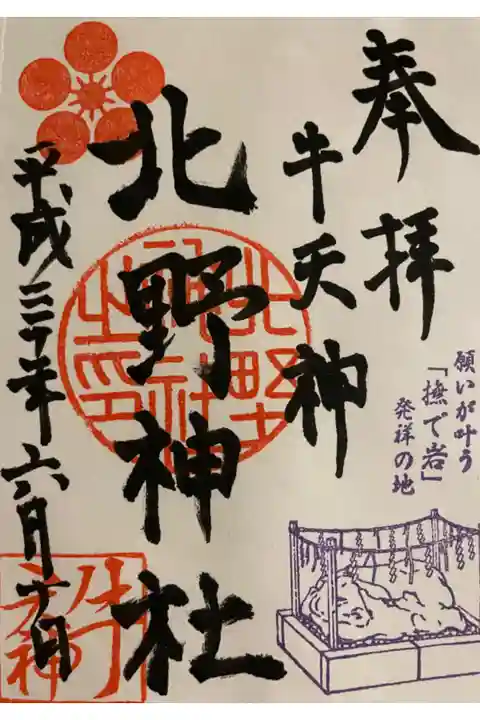 奉拝
牛天神
北野神社
平成三十年六月十日
願いが叶う
「撫で岩」
発祥の地
北野神社之印
牛天神